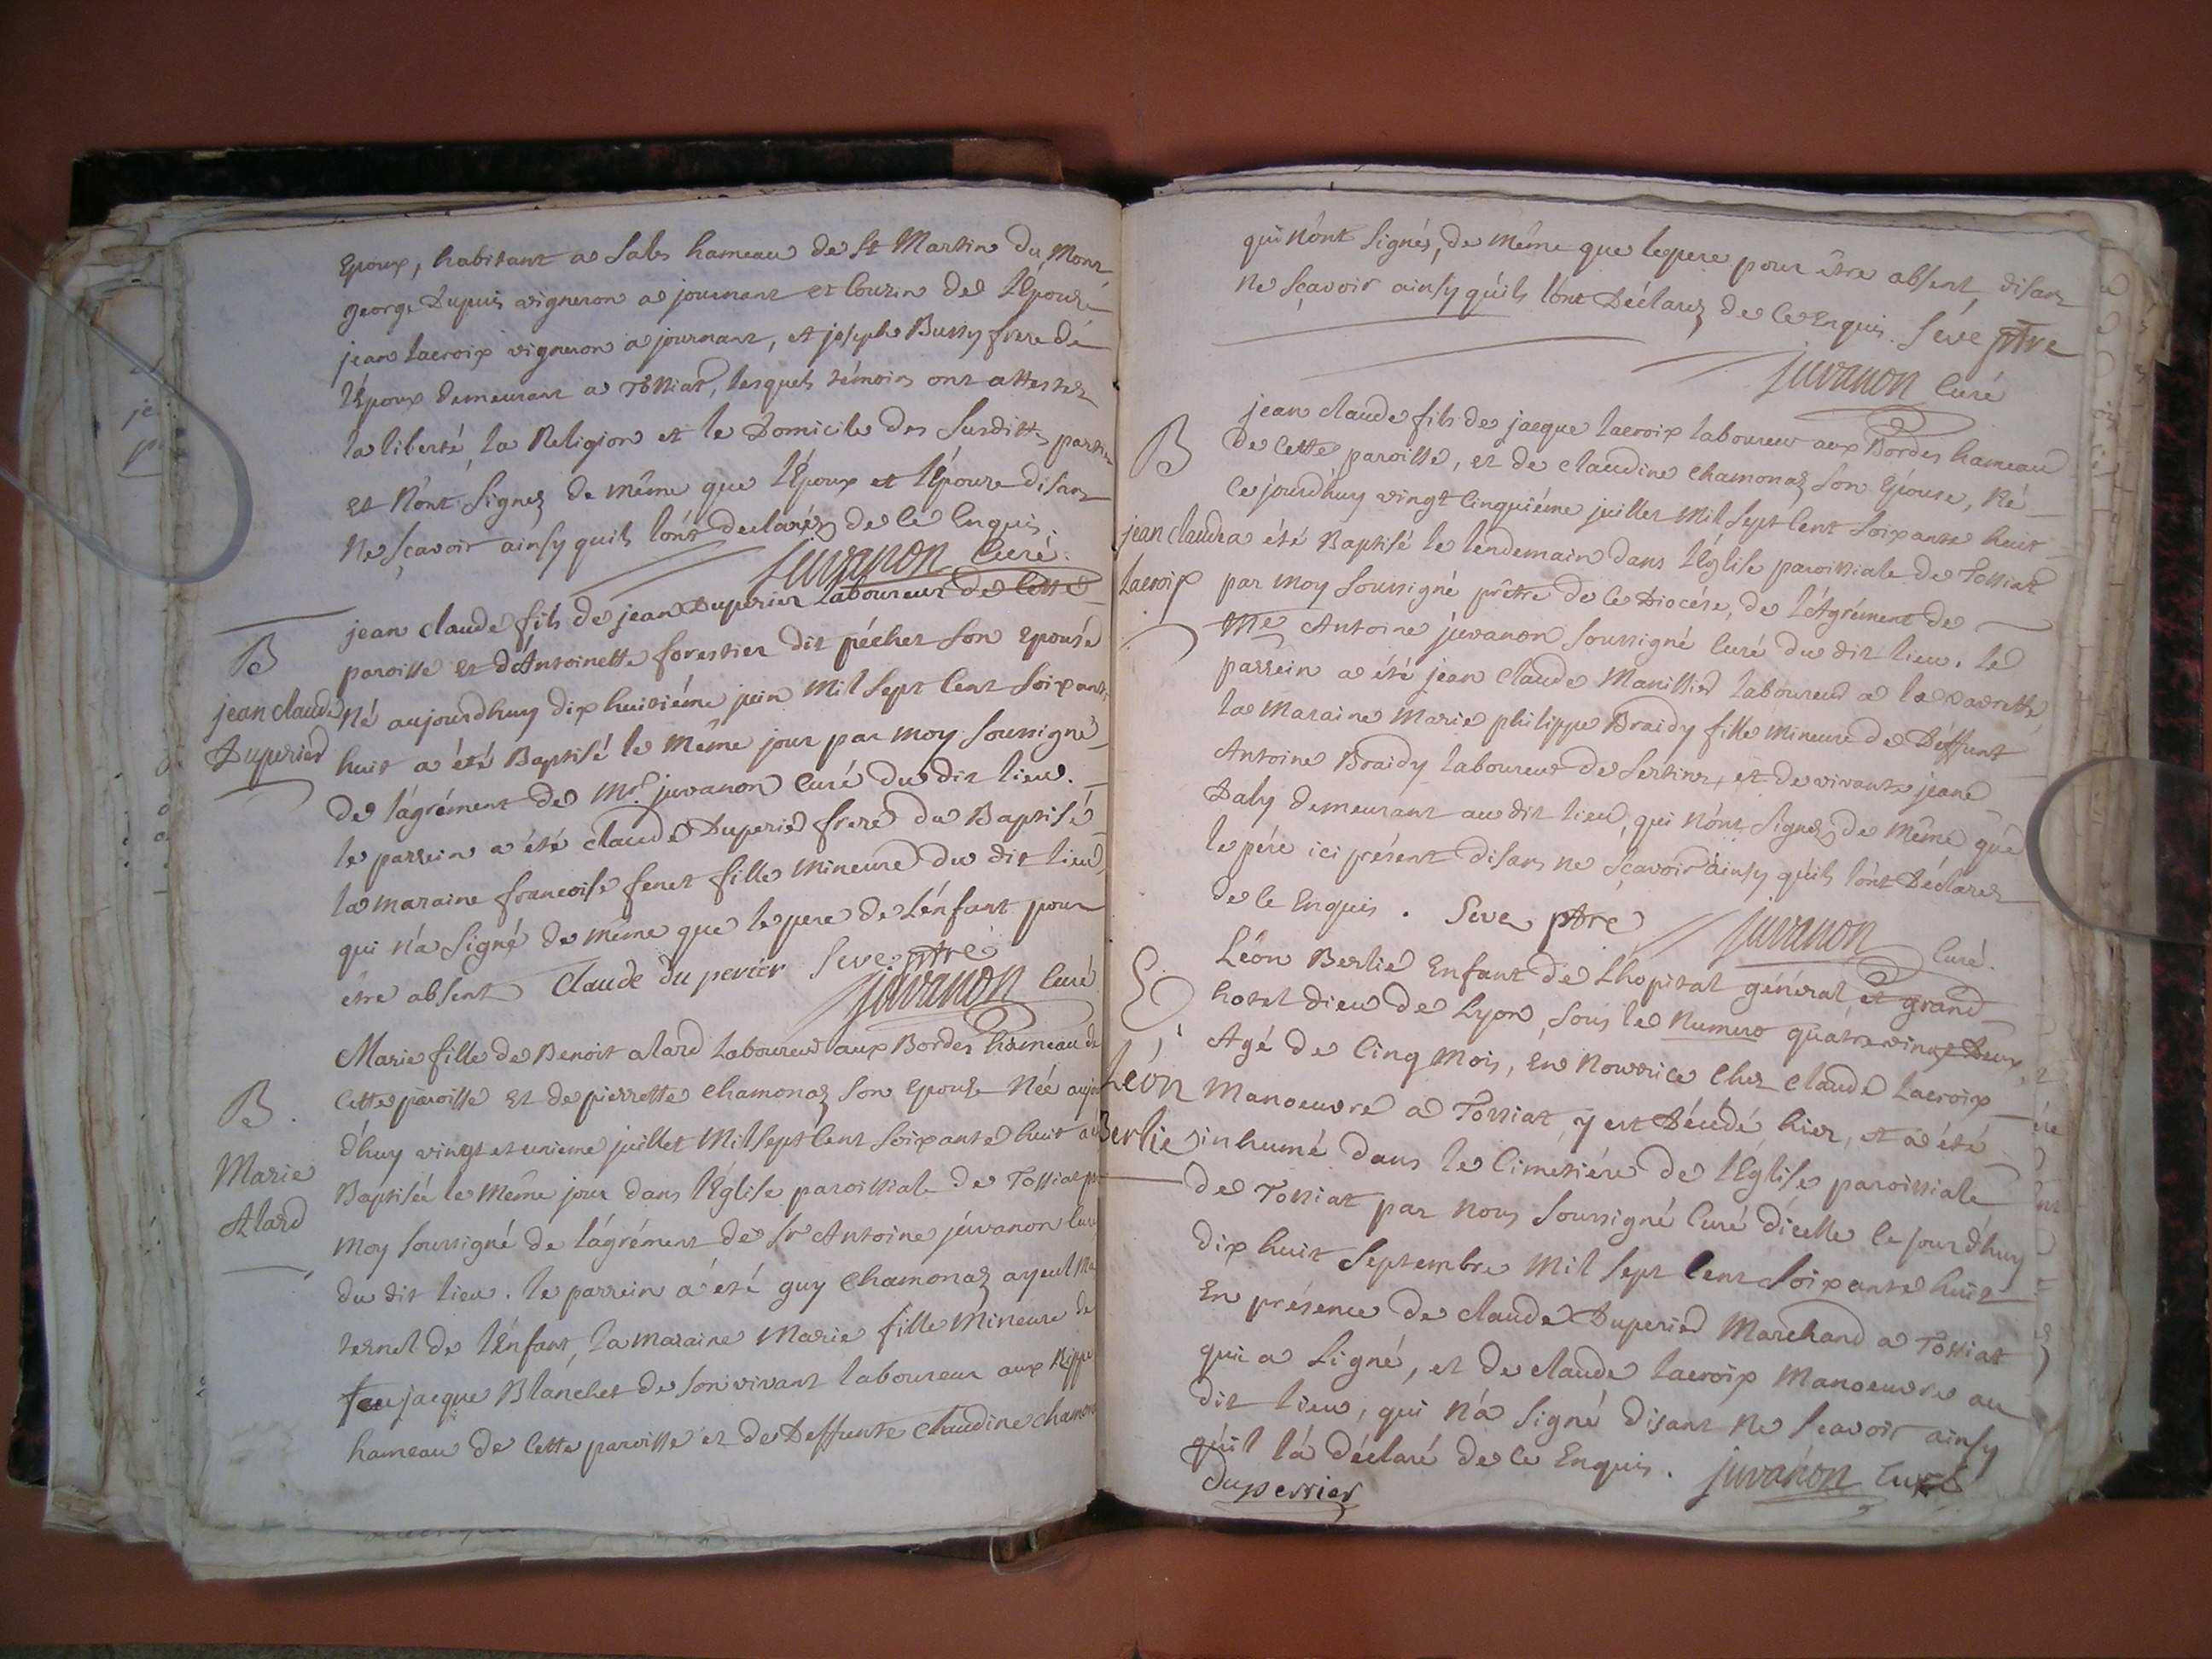 Epoux, habitant a Sales hameau de St Martin du Mont
george Dupuis vigneron a journant et Couzin de l'Epouze
jean Lacroix vigneron a journant, et joseph Bussy frere de
l'Epoux demeurant a Tossiat, lesquels témoins ont attestez
la liberté, la Religion et le Domicile des Susdittes parties
Et N'ont Signez de même que l'Epoux et l'Epouze disant
Ne Sçavoir ainsy quils l'ont declarez de ce Enquis.
juvanon Curé.
B
jean claude
Duperier
jean claude fils de jean Duperier Laboureur de Cette
paroisse et d'Antoinette forestier dit pécher Son Epouse
Né aujourdhuy dix huitiéme juin Mil Sept Cent Soixante
huit a été Baptisé le Même jour par moy Soussigné
de l'agrément de Mr. juvanon Curé du dit lieu.
le parrein a été claude Duperier frere du Baptisé
la maraine francoise fenet fille Mineure du dit lieu
qui n'a Signé de meme que le pere de L'énfant pour
être absent Claude du perrier Seve ptre
juvanon Curé
B.
Marie
Alard
Marie fille de Benoit alard Laboureur aux Bordes hameau de
Cette paroisse Et de pierrette Chamonaz Son Epouze Née aujour
d'huy vingt et unieme juillet Mil Sept Cent Soixante huit a
Baptisée le Même jour dans l'Église paroissiale de Tossiat par
moy Soussigné de l'agrément de Sr Antoine juvanon Curé
du dit lieu. le parrein a été guy Chamonaz ayeul Ma
ternel de l'Enfant, la maraine Marie fille Mineure de
feu jacque Blanchet de Son vivant laboureur aux Rippes
hameau de Cette paroisse et de Deffunte Claudine chamonaz
qui N'ont Signés, de Même que le pere pour être absent, disant
Ne Sçavoir ainsy qu'ils l'ont Déclarez de Ce Enquis. Séve ptre
juvanon Curé
B
jean claude
Lacroix
jean claude fils de jacque Lacroix laboureur aux Bordes hameau
de Cette paroisse, et de claudine Chamonaz Son Epouse, Né
Ce jourd'huy vingt Cinquiéme juillet Mil Sept Cent Soixante huit
a été Baptisé le lendemain dans l'Église paroissiale de Tossiat
par moy Soussigné prêtre de Ce Diocése, de l'Agrément de
Mre Antoine juvanon Soussigné Curé du dit lieu. le
parrein a été jean Claude Manissier Laboureur a la
la Maraine Marie philippe Braidy fille Mineure de Déffunt
Antoine Braidy laboureur de Sertines, et de vivante jeane
Daly demeurant au dit lieu, qui n'ont Signez de Même que
le pére ici présent disans ne Sçavoir ainsy qu'ils l'ont Déclarez
de Ce Enquis. Seve ptre
juvanon Curé.
Léon
Berlie
Léon Berlie Enfant de L'hopital général et grand
hotel dieu de Lyon, Sous le Numero quatrevingt Deux,
Agé de Cinq Mois, En Nourrice Chez Claude Lacroix
Manoeuvre a Tossiat, y est Décédé hier, et a été
inhumé dans le Cimetiére de l'Eglise paroissiale
de Tossiat par Nous Soussigné Curé d'icelle Ce jourd'huy
dix huit Septembre Mil Sept Cent Soixante huit
En présence de claude Duperier Marchand a Tossiat
qui a Signé, et de claude Lacroix Manoeuvre au
dit lieu, qui N'a Signé disant Ne Scavoir ainsy
qu'il l'a déclaré de Ce Enquis. juvanon Curé
Duperrier